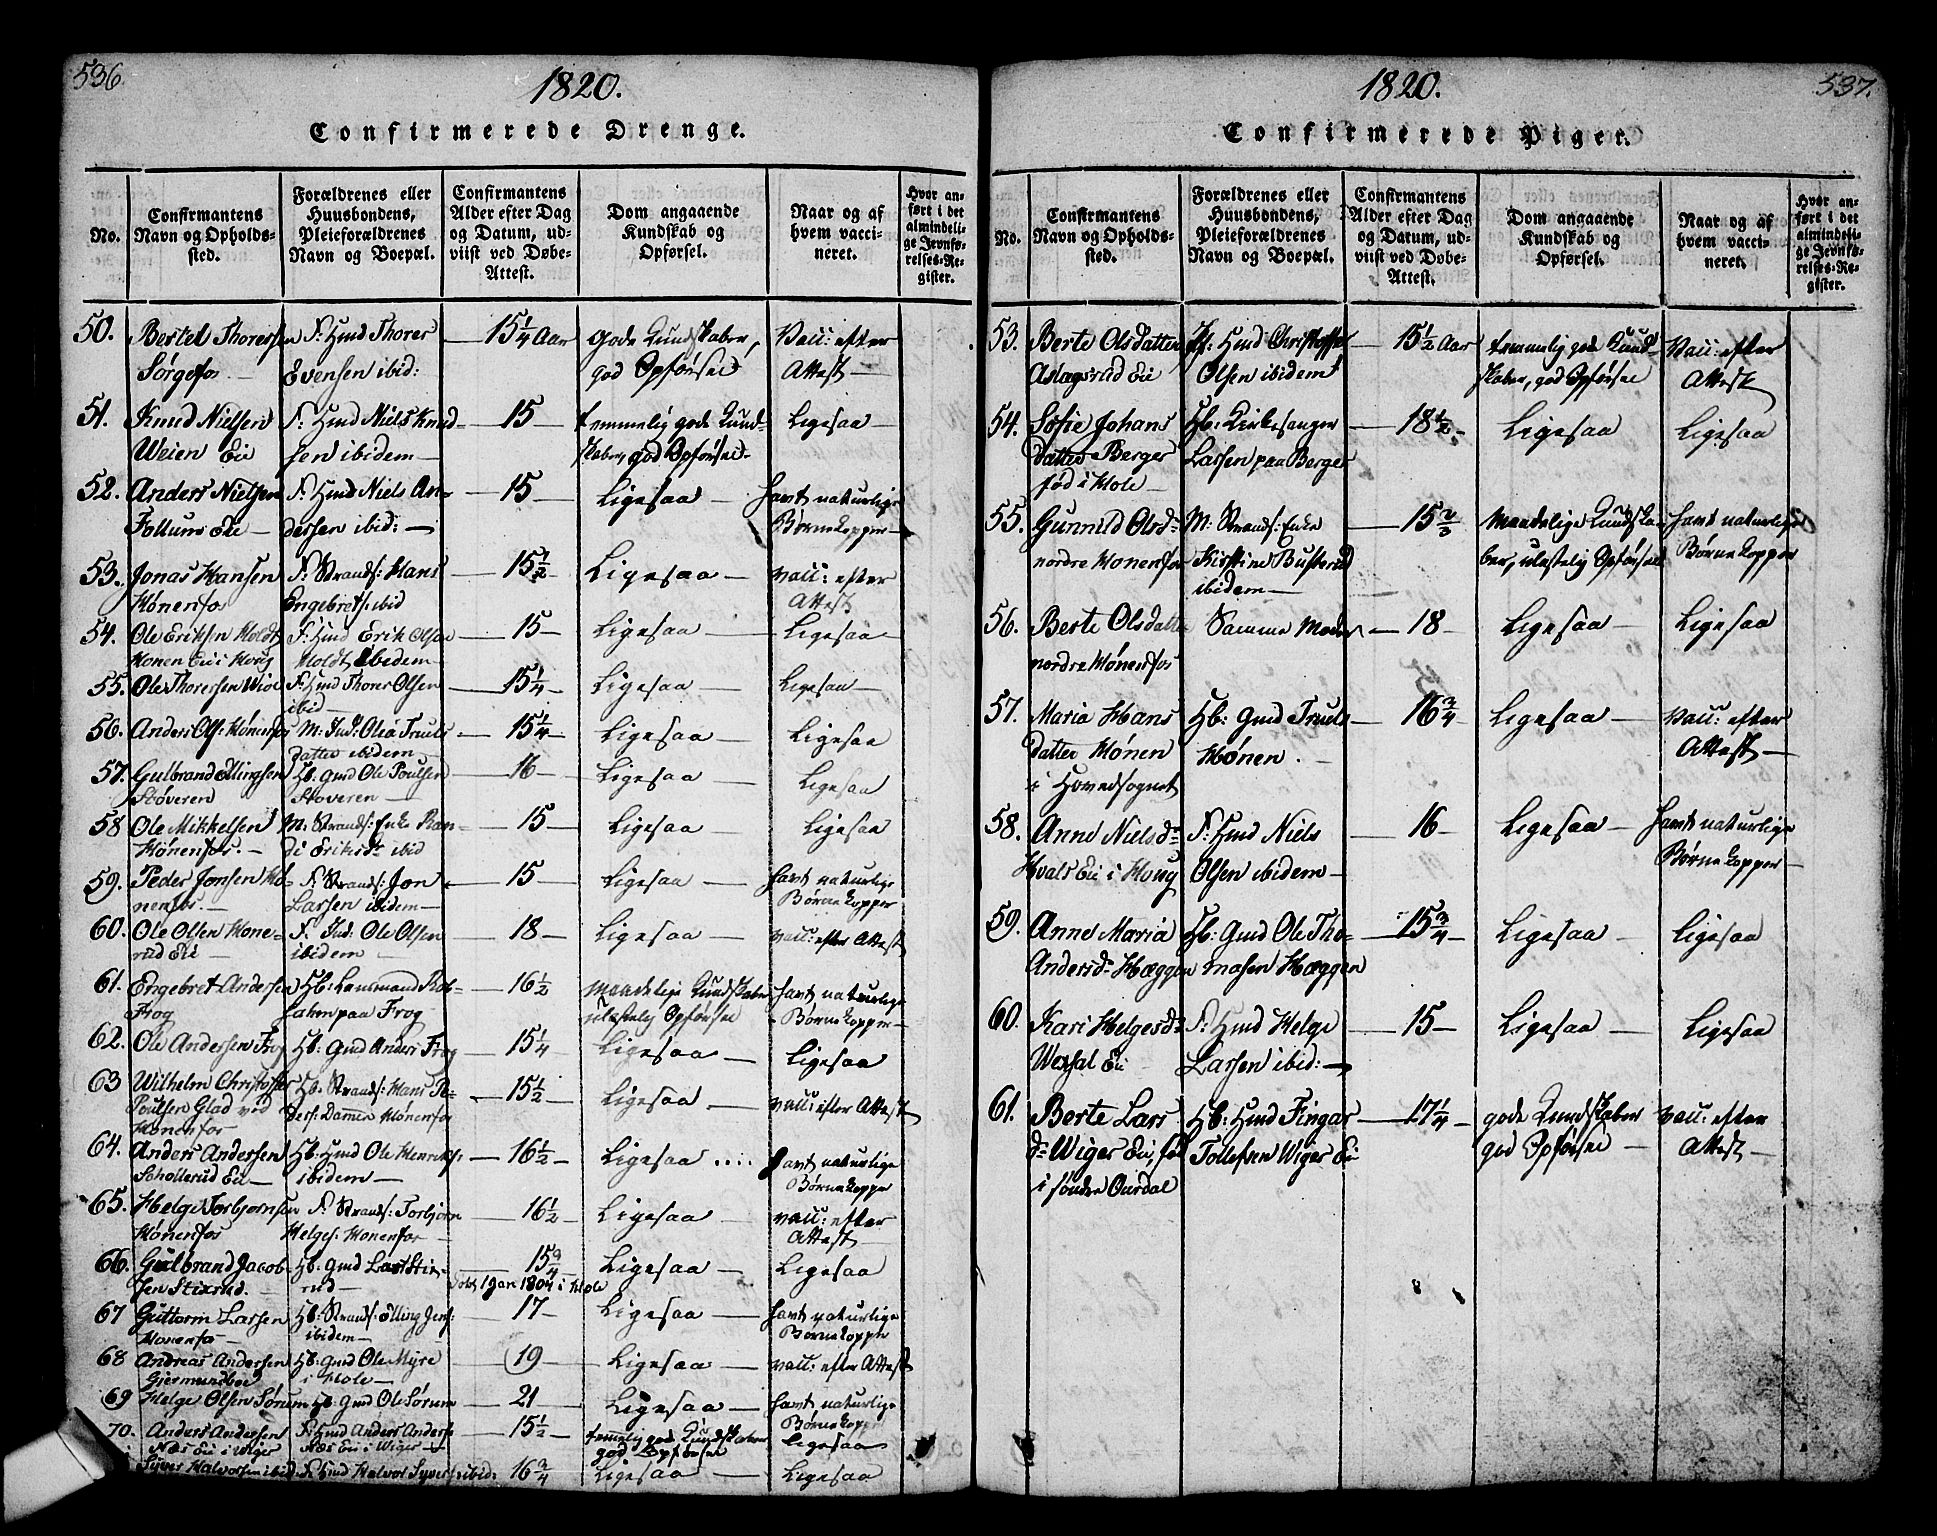 536.
1820.
Confirmerede Drenge.
No.
Confirmantens Navn og Opholdssted.
Forældrenes eller Huusbondens, Pleieforældrenes Navn og Boepæl.
Confirmantens Alder efter Dag og Datum, udviist ved Døbe-Attest.
Dom angaaende Kundskab og Opførsel.
Naar og af hvem vaccineret.
Hvor anført i det almindelige Jevnførelses-Register.
50. Bertel Thoresen F: Hmd Thorer — 15 1/4 Aar gode Kundskaber, Vacc: efter
Sørgefos — Evensen ibid: god Opførsel Attest —
51. Knud Nielsen F: Hmd Niels Knud- — 15 — temmelig gode Kund- Ligesaa —
Weien Eie sen ibidem — skaber, god Opførsel —
52. Anders Nielsen F: Hmd Niels An- — 15 — Ligesaa — havt naturlige
Follum Eie — dersen ibid: — Børnekopper —
53. Jonas Hansen F: Strands: Hans — 15 1/2 — Ligesaa — vacc: efter
Hønenfos Engebrets: ibid Attest
54. Ole Eriksen Holdt F: Hmd Erik Olsen — 15 — Ligesaa — Ligesaa
Hønen Eie i Houg Holdt ibidem —
55. Ole Thoresen F: Hmd Thorer Olsen — 15 1/4 — Ligesaa — Ligesaa —
ibid —
56. Anders Ols: Hønenfos M: Ind: Olea Truels — 15 1/4 — Ligesaa — Ligesaa
datter ibidem —
57. Gulbrand Ellingsen Hb: Gmd Ole Poulsen — 16 — Ligesaa — Ligesaa
Støveren Støveren —
58 Ole Mikkelsen M: Strands: Enke Ran- — 15 — Ligesaa — Ligesaa
Hønenfos. — di Eriksdr ibid
59. Peder Jonsen Hø- F: Strands: Jon — 15 — Ligesaa — havt naturlige
nenfos. — Larsen ibidem — Børnekopper
60. Ole Olsen Høne- F: Ind: Ole Olsen — 18 — Ligesaa — vacc: efter Attest
rud Eie — ibidem —
61. Engebret Andersen Hb: — 16 1/2 maadelige Kundskaber havt naturlige
Frog paa Frog ulastelig Opførsel Børnekopper —
62. Ole Andersen Frog Hb: Gmd Anders Frog — 15 1/4 — Ligesaa — Ligesaa
63 Wilhelm Christoffer Hb: Strands: Hans Pe- — 15 1/2 — Ligesaa — vacc: efter Attest
Poulsen Glad ved ders: Hønenfos
Hønenfos
64. Anders Andersen Hb: Hmd Ole Henriks: — 16 1/2 — Ligesaa .... havt naturlige
Schollerud Eie — ibidem — Børnekopper
65. Helge Torbjørnsen F: Strands: Torbjørn — 16 1/2 — Ligesaa — vacc: efter
Hønenfos Helges: Hønenfos — Attest —
66. Gulbrand Jacob- Hb: Gmd Lars Stix- — 15 3/4 — Ligesaa — Ligesaa
sen Stixrud. — rud — 1804 i Hole
67 Guttorm Larsen Hb: Strands: Elling Jens: — 17 — Ligesaa — havt naturlige
Hønenfos — ibidem — Børnekopper
68 Andreas Andersen Hb: Gmd Ole Myre — 19 — Ligesaa — vacc: efter Attest
Gjermundboe i Hole —
69 Helge Olsen Sørum Hb: Gmd Ole Sørum — 21 — Ligesaa — havt naturlige
Børnekopper
70. Anders Andersen F: Hmd Anders Anders: — 15 1/2 — temmelig gode Kundskaber Ligesaa
Næs Eie i Wiger Næs Eie i Wiger — god Opførsel
Syver Halvorsen ibid: F: Hmd Halvor Syvers: ibid: 16 3/4 — Ligesaa — Ligesaa
537.
1820.
Confirmerede Piger.
No.
Confirmantens Navn og Opholdssted.
Forældrenes eller Huusbondens, Pleieforældrenes Navn og Boepæl.
Confirmantens Alder efter Dag og Datum, udviist ved Døbe-Attest.
Dom angaaende Kundskab og Opførsel.
Naar og af hvem vaccineret.
Hvor anført i det almindelige Jevnførelses-Register.
53. Berte Olsdatter Hmd Christoffer — 15 1/2 Aar temmelig gode Kund- Vacc: efter
Aslagsrud Eie Olsen ibidem skaber, god Opførsel Attest
54. Sofie Johans Hb: Kirkesanger — 18 1/2 — Ligesaa — Ligesaa
datter Berger Larsen paa Berger
fød i Hole —
55. Gunnild Olsdr M: Strands: Enke — 15 2/3 — maadelige Kundska- havt naturlige
nordre Hønenfos Kirstine Busterud ber, ulastelig Opførsel Børnekopper
ibidem —
56. Berte Olsdatter Samme Moder — 18 — Ligesaa — Ligesaa
nordre Hønenfos
57. Maria Hans Hb: Gmd Truels — 16 3/4 — Ligesaa — vacc: efter
datter Hønen Hønen. — Attest —
i Hovedsognet
58. Anne Nielsdr F: Hmd Niels — 16 — Ligesaa — havt naturlige
Hvals Eie i Houg Olsen ibidem — Børnekopper —
59. Anne Maria Hb: Gmd Ole Tho- — 15 3/4 — Ligesaa — Ligesaa
Andersdr Hæggen masen Hæggen
60. Kari Helgesdr F: Hmd Helge — 15 — Ligesaa — Ligesaa
Wexal Eie Larsen ibid: —
61. Berte Lars Hb: Hmd Fingar — 17 1/4 — gode Kundskaber vacc: efter
dr Wiger Eie, fød Tollefsen Wiger Eie god Opførsel — Attest —
i søndre Ourdal